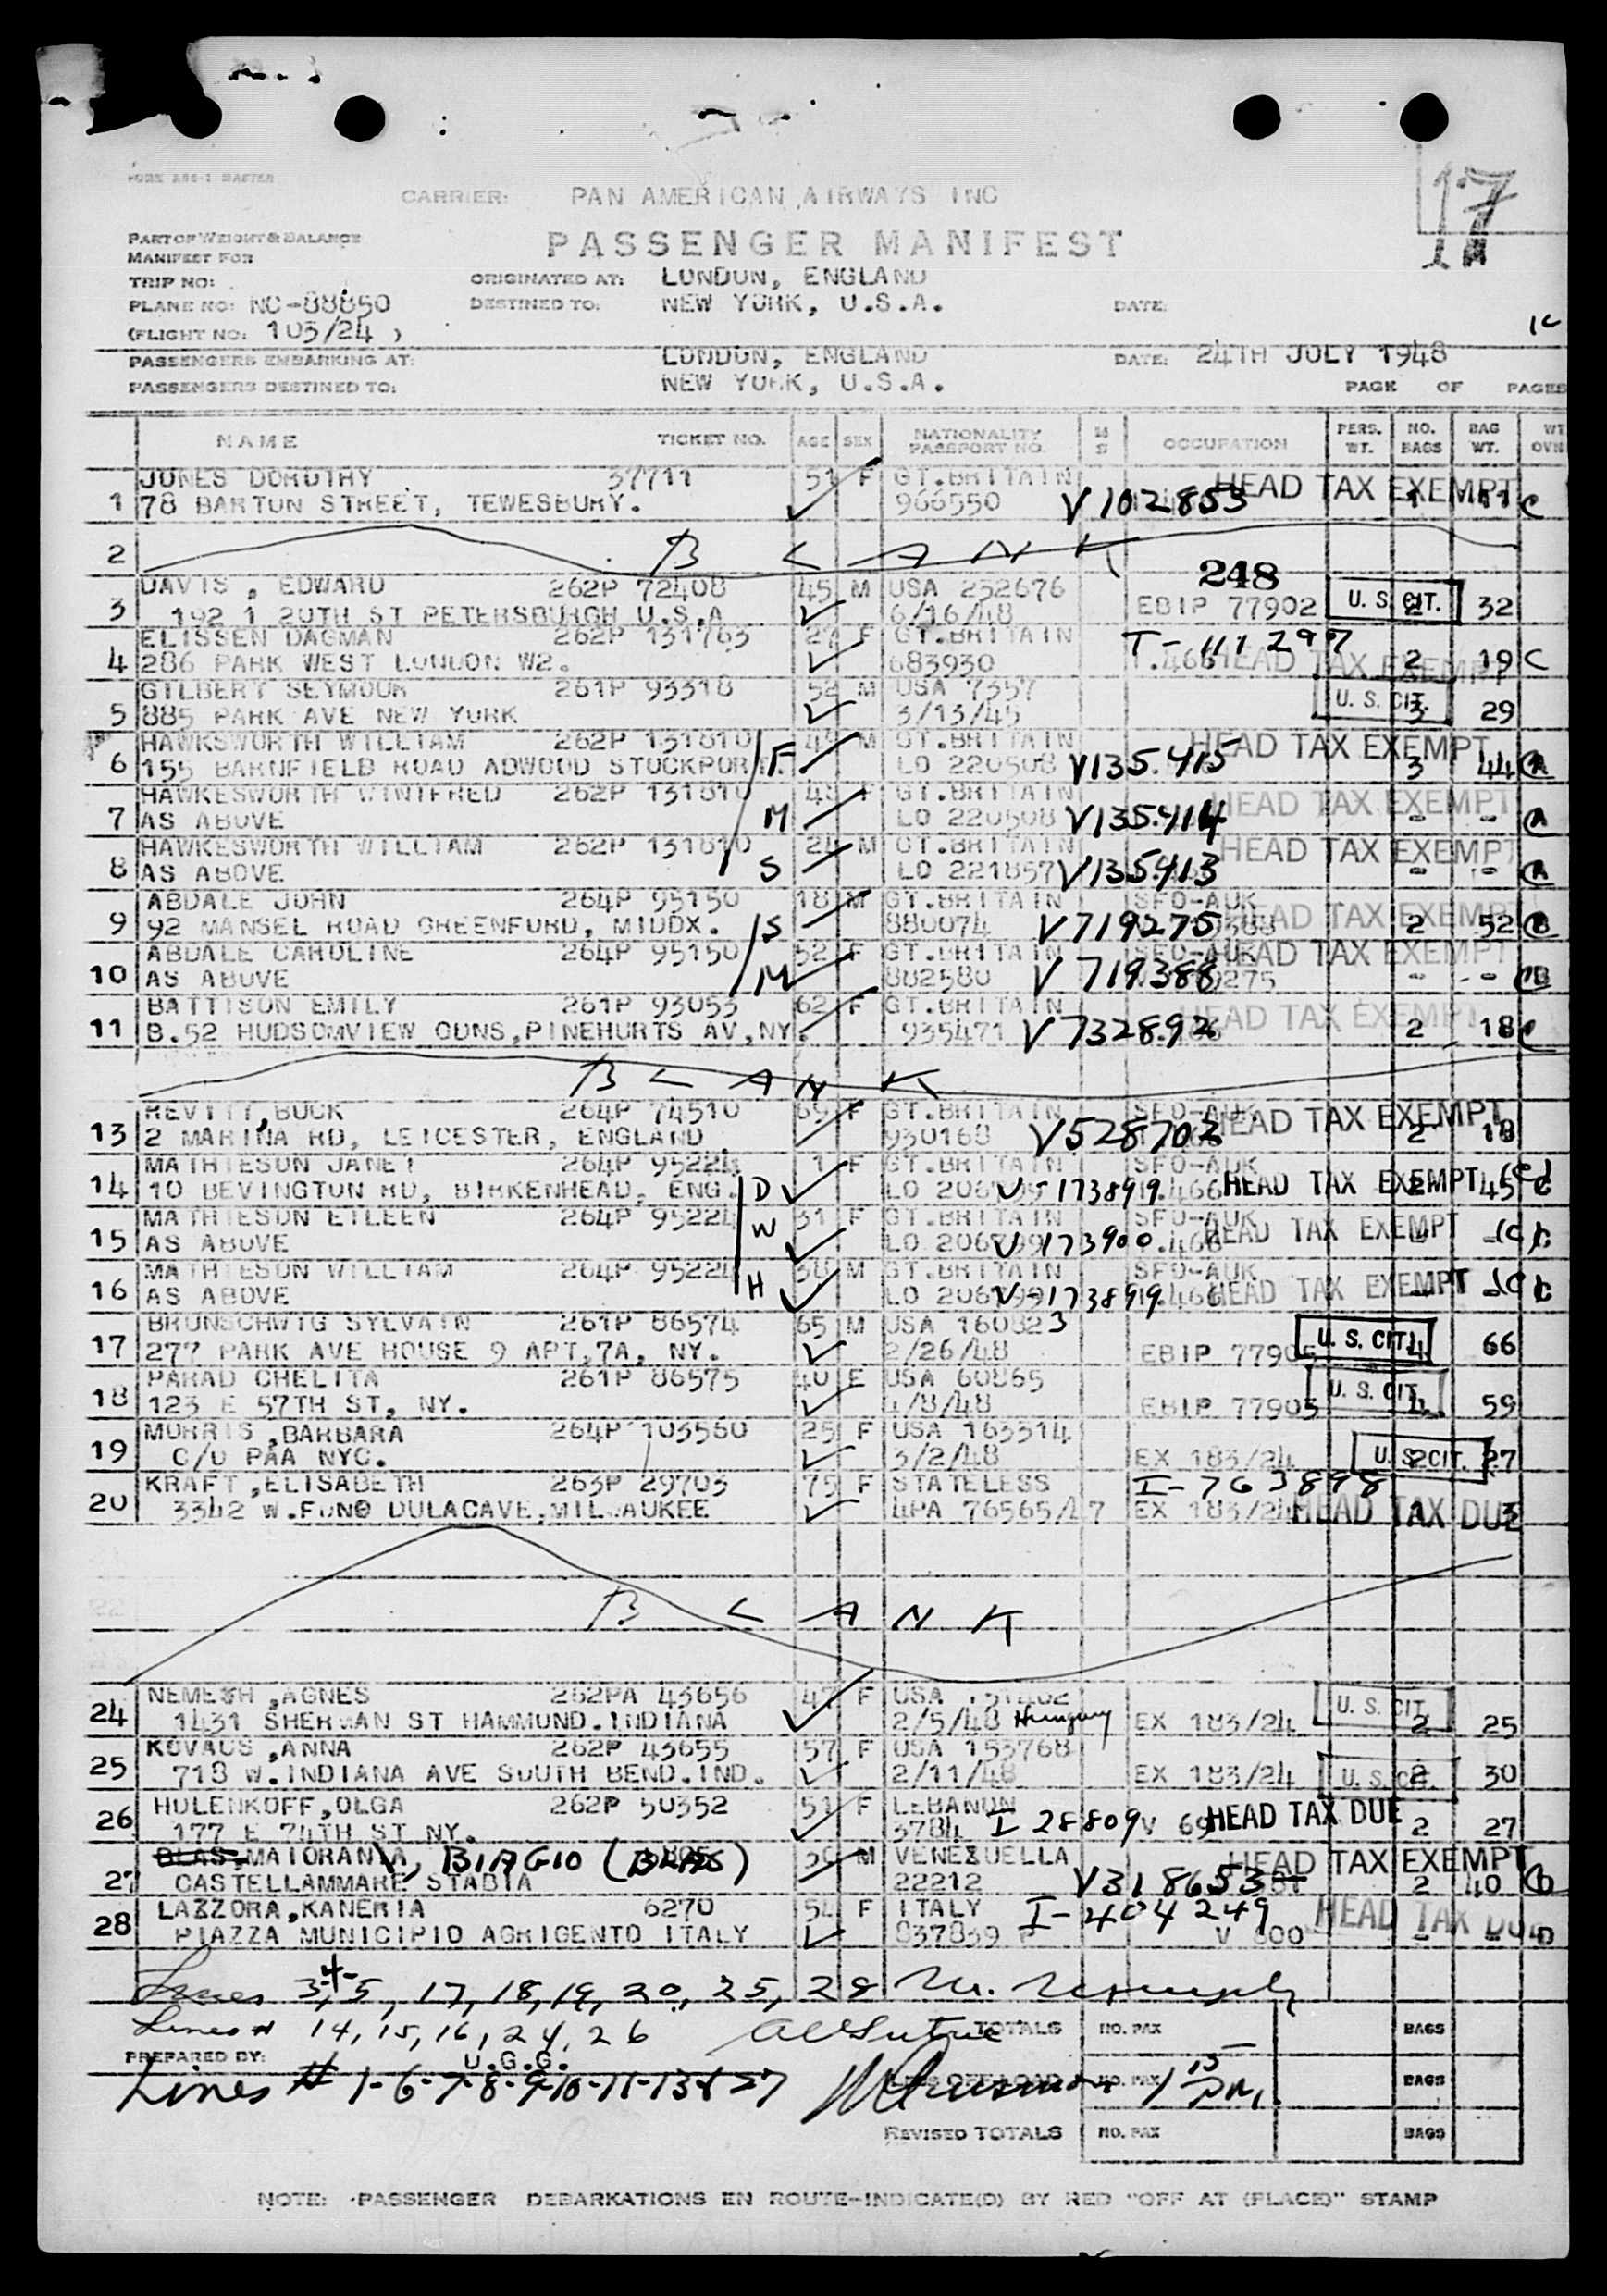 17
CARRIER: PAN AMERICAN AIRWAYS INC
PART OF WEIGHT & BALANCE
MANIFEST FOR
PASSENGER MANIFEST
TRIP NO: ORIGINATED AT: LONDON, ENGLAND
PLANE NO: NC-88850 DESTINED TO: NEW YORK, U.S.A. DATE:
(FLIGHT NO: 103/24 )
PASSENGERS EMBARKING AT: LONDON, ENGLAND DATE: 24TH JULY 1948
PASSENGERS DESTINED TO: NEW YORK, U.S.A.
PAGE OF PAGES
NAME TICKET NO. AGE SEX NATIONALITY PASSPORT NO. M S OCCUPATION PERS. WT. NO. BAGS BAG WT. WT
JONES DOROTHY 37711 51 F GT.BRITAIN HEAD TAX EXEMPT
1 78 BARTON STREET, TEWESBURY. 966550 V102853 1 C
2 BLANK
248
DAVIS , EDWARD 262P 72408 45 M USA 252676
3 192 1 20TH ST PETERSBURGH U.S.A 6/16/48 EBIP 77902 U. S. CIT. 2 32
ELISSEN DAGMAN 262P 131763 27 F GT.BRITAIN T-111297
4 286 PARK WEST LONDON W2. 683930 HEAD TAX EXEMPT 2 19 C
GILBERT SEYMOUR 261P 93318 52 M USA 7357 U. S. CIT.
5 885 PARK AVE NEW YORK 3/13/45 3 29
HAWKSWORTH WILLIAM 262P 131810 M GT.BRITAIN HEAD TAX EXEMPT
6 155 BARNFIELD ROAD ADWOOD STOCKPORT F LO 220508 V135.415 3 44 A
HAWKESWORTH WINIFRED 262P 131810 48 F GT.BRITAIN HEAD TAX EXEMPT
7 AS ABOVE M LO 220508 V135.414 - - A
HAWKESWORTH WILLIAM 262P 131810 21 M GT.BRITAIN HEAD TAX EXEMPT
8 AS ABOVE S LO 221857 V135413 - - A
ABDALE JOHN 264P 95150 18 M GT.BRITAIN SFO-AUK
9 92 MANSEL ROAD GREENFORD, MIDDX. S 880074 V719275 HEAD TAX EXEMPT 2 52 B
ABDALE CAROLINE 264P 95150 52 F GT.BRITAIN SFO-AUK HEAD TAX EXEMPT
10 AS ABOVE M 882580 V 719388 - - B
BATTISON EMILY 261P 93053 62 F GT.BRITAIN
11 B.52 HUDSONVIEW GDNS,PINEHURTS AV,NY. 935471 V 732892 HEAD TAX EXEMPT 2 18 C
BLANK
REVITT,BUCK 264P 74510 69 F GT.BRITAIN SFO-AUK HEAD TAX EXEMPT
13 2 MARINA RD, LEICESTER, ENGLAND 930168 V528702 2 18
MATHIESON JANET 264P 95224 1 F GT.BRITAIN SFO-AUK
14 10 BEVINGTON RD, BIRKENHEAD, ENG. D V-173899 HEAD TAX EXEMPT 2 45
MATHIESON EILEEN 264P 95224 31 F GT.BRITAIN SFO-AUK
15 AS ABOVE W V-173900 HEAD TAX EXEMPT
MATHIESON WILLIAM 264P 95224 38 M GT.BRITAIN SFO-AUK
16 AS ABOVE H V-173899 HEAD TAX EXEMPT
BRUNSCHWIG SYLVAIN 261P 86574 65 M USA 160823
17 277 PARK AVE HOUSE 9 APT,7A, NY. 2/26/48 EBIP 77905 U. S. CIT. 4 66
PARAD CHELITA 261P 86575 40 F USA 60865 U. S. CIT.
18 123 E 57TH ST, NY. 1/8/48 EBIP 77905 4 59
MORRIS ,BARBARA 264P 103560 25 F USA 163314
19 C/O PAA NYC. 3/2/48 EX 183/24 U.S.CIT. 2 27
KRAFT ,ELISABETH 263P 29703 75 F STATELESS I-763898
20 3342 W.FOND DULACAVE,MILWAUKEE 4PA 76565/47 EX 183/24 HEAD TAX DUE 1 3
BLANK
NEMESH ,AGNES 262PA 43656 47 F USA U. S. CIT.
24 1431 SHERMAN ST HAMMUND.INDIANA 2/5/48 Hungary EX 183/24 2 25
KOVACS ,ANNA 262P 43655 57 F USA 153768
25 718 W.INDIANA AVE SOUTH BEND.IND. 2/11/48 EX 183/24 U. S. CIT. 2 30
HOLENKOFF,OLGA 262P 50352 51 F LEBANON
26 177 E 74TH ST NY. 3784 I 28809 V HEAD TAX DUE 2 27
BLAS,MAIORANIA, BIAGIO (BLAS) M VENEZUELLA HEAD TAX EXEMPT
27 CASTELLAMMARE STABIA 22212 V318653 2 40
LAZZORA,KANERIA 6270 54 F ITALY I-404249
28 PIAZZA MUNICIPIO AGRIGENTO ITALY 837839 P V HEAD TAX DUE
Lines 3,4,5, 17, 18, 19, 20, 25, 28
Lines # 14, 15, 16, 24, 26 TOTALS NO. PAX BAGS
PREPARED BY: U.G.G.
Lines # 1-6-7-8-9-10-11-13-&27 NO. PAX 1 15 PM BAGS
REVISED TOTALS NO. PAX BAGS
NOTE: PASSENGER DEBARKATIONS EN ROUTE-INDICATE(D) BY RED "OFF AT (PLACE)" STAMP